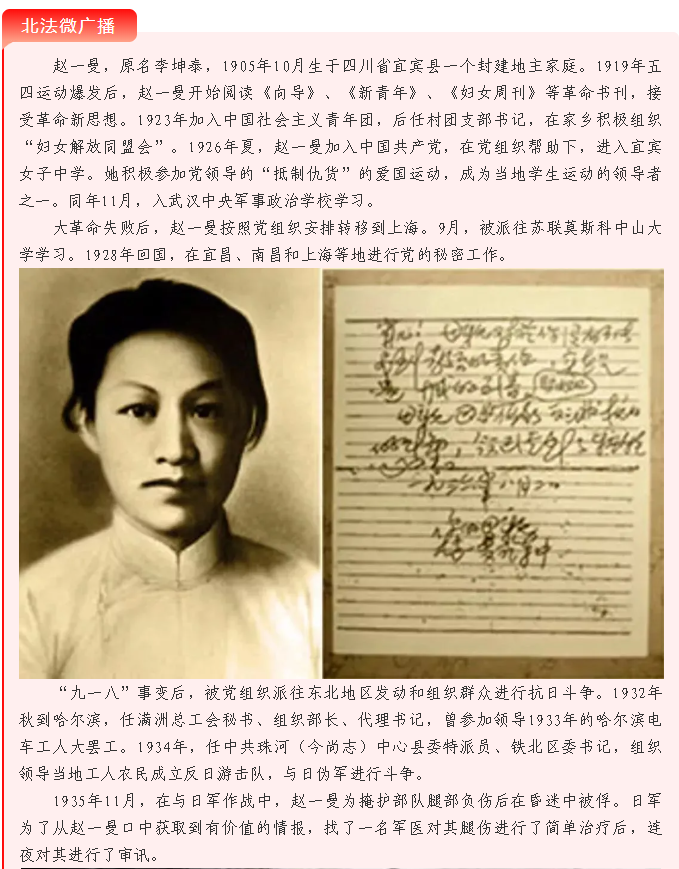 北法微广播
赵一曼，原名李坤泰，1905年10月生于四川省宜宾县一个封建地主家庭。1919年五
四运动爆发后，赵一曼开始阅读《向导》、《新青年》、《妇女周刊》等革命书刊，接
受革命新思想。1923年加入中国社会主义青年团，后任村团支部书记，在家乡积极组织
“妇女解放同盟会”。1926年夏，赵一曼加入中国共产党，在党组织帮助下，进入宜宾
女子中学。她积极参加党领导的“抵制仇货”的爱国运动，成为当地学生运动的领导者
之一。同年11月，入武汉中央军事政治学校学习。
大革命失败后，赵一曼按照党组织安排转移到上海。9月，被派往苏联莫斯科中山大
学学习。1928年回国，在宜昌、南昌和上海等地进行党的秘密工作。
一九三六年八月二日
“九一八”事变后，被党组织派往东北地区发动和组织群众进行抗日斗争。1932年
秋到哈尔滨，任满洲总工会秘书、组织部长、代理书记，曾参加领导1933年的哈尔滨电
车工人大罢工。1934年，任中共珠河（今尚志）中心县委特派员、铁北区委书记，组织
领导当地工人农民成立反日游击队，与日伪军进行斗争。
1935年11月，在与日军作战中，赵一曼为掩护部队腿部负伤后在昏迷中被俘。日军
为了从赵一曼口中获取到有价值的情报，找了一名军医对其腿伤进行了简单治疗后，连
夜对其进行了审讯。